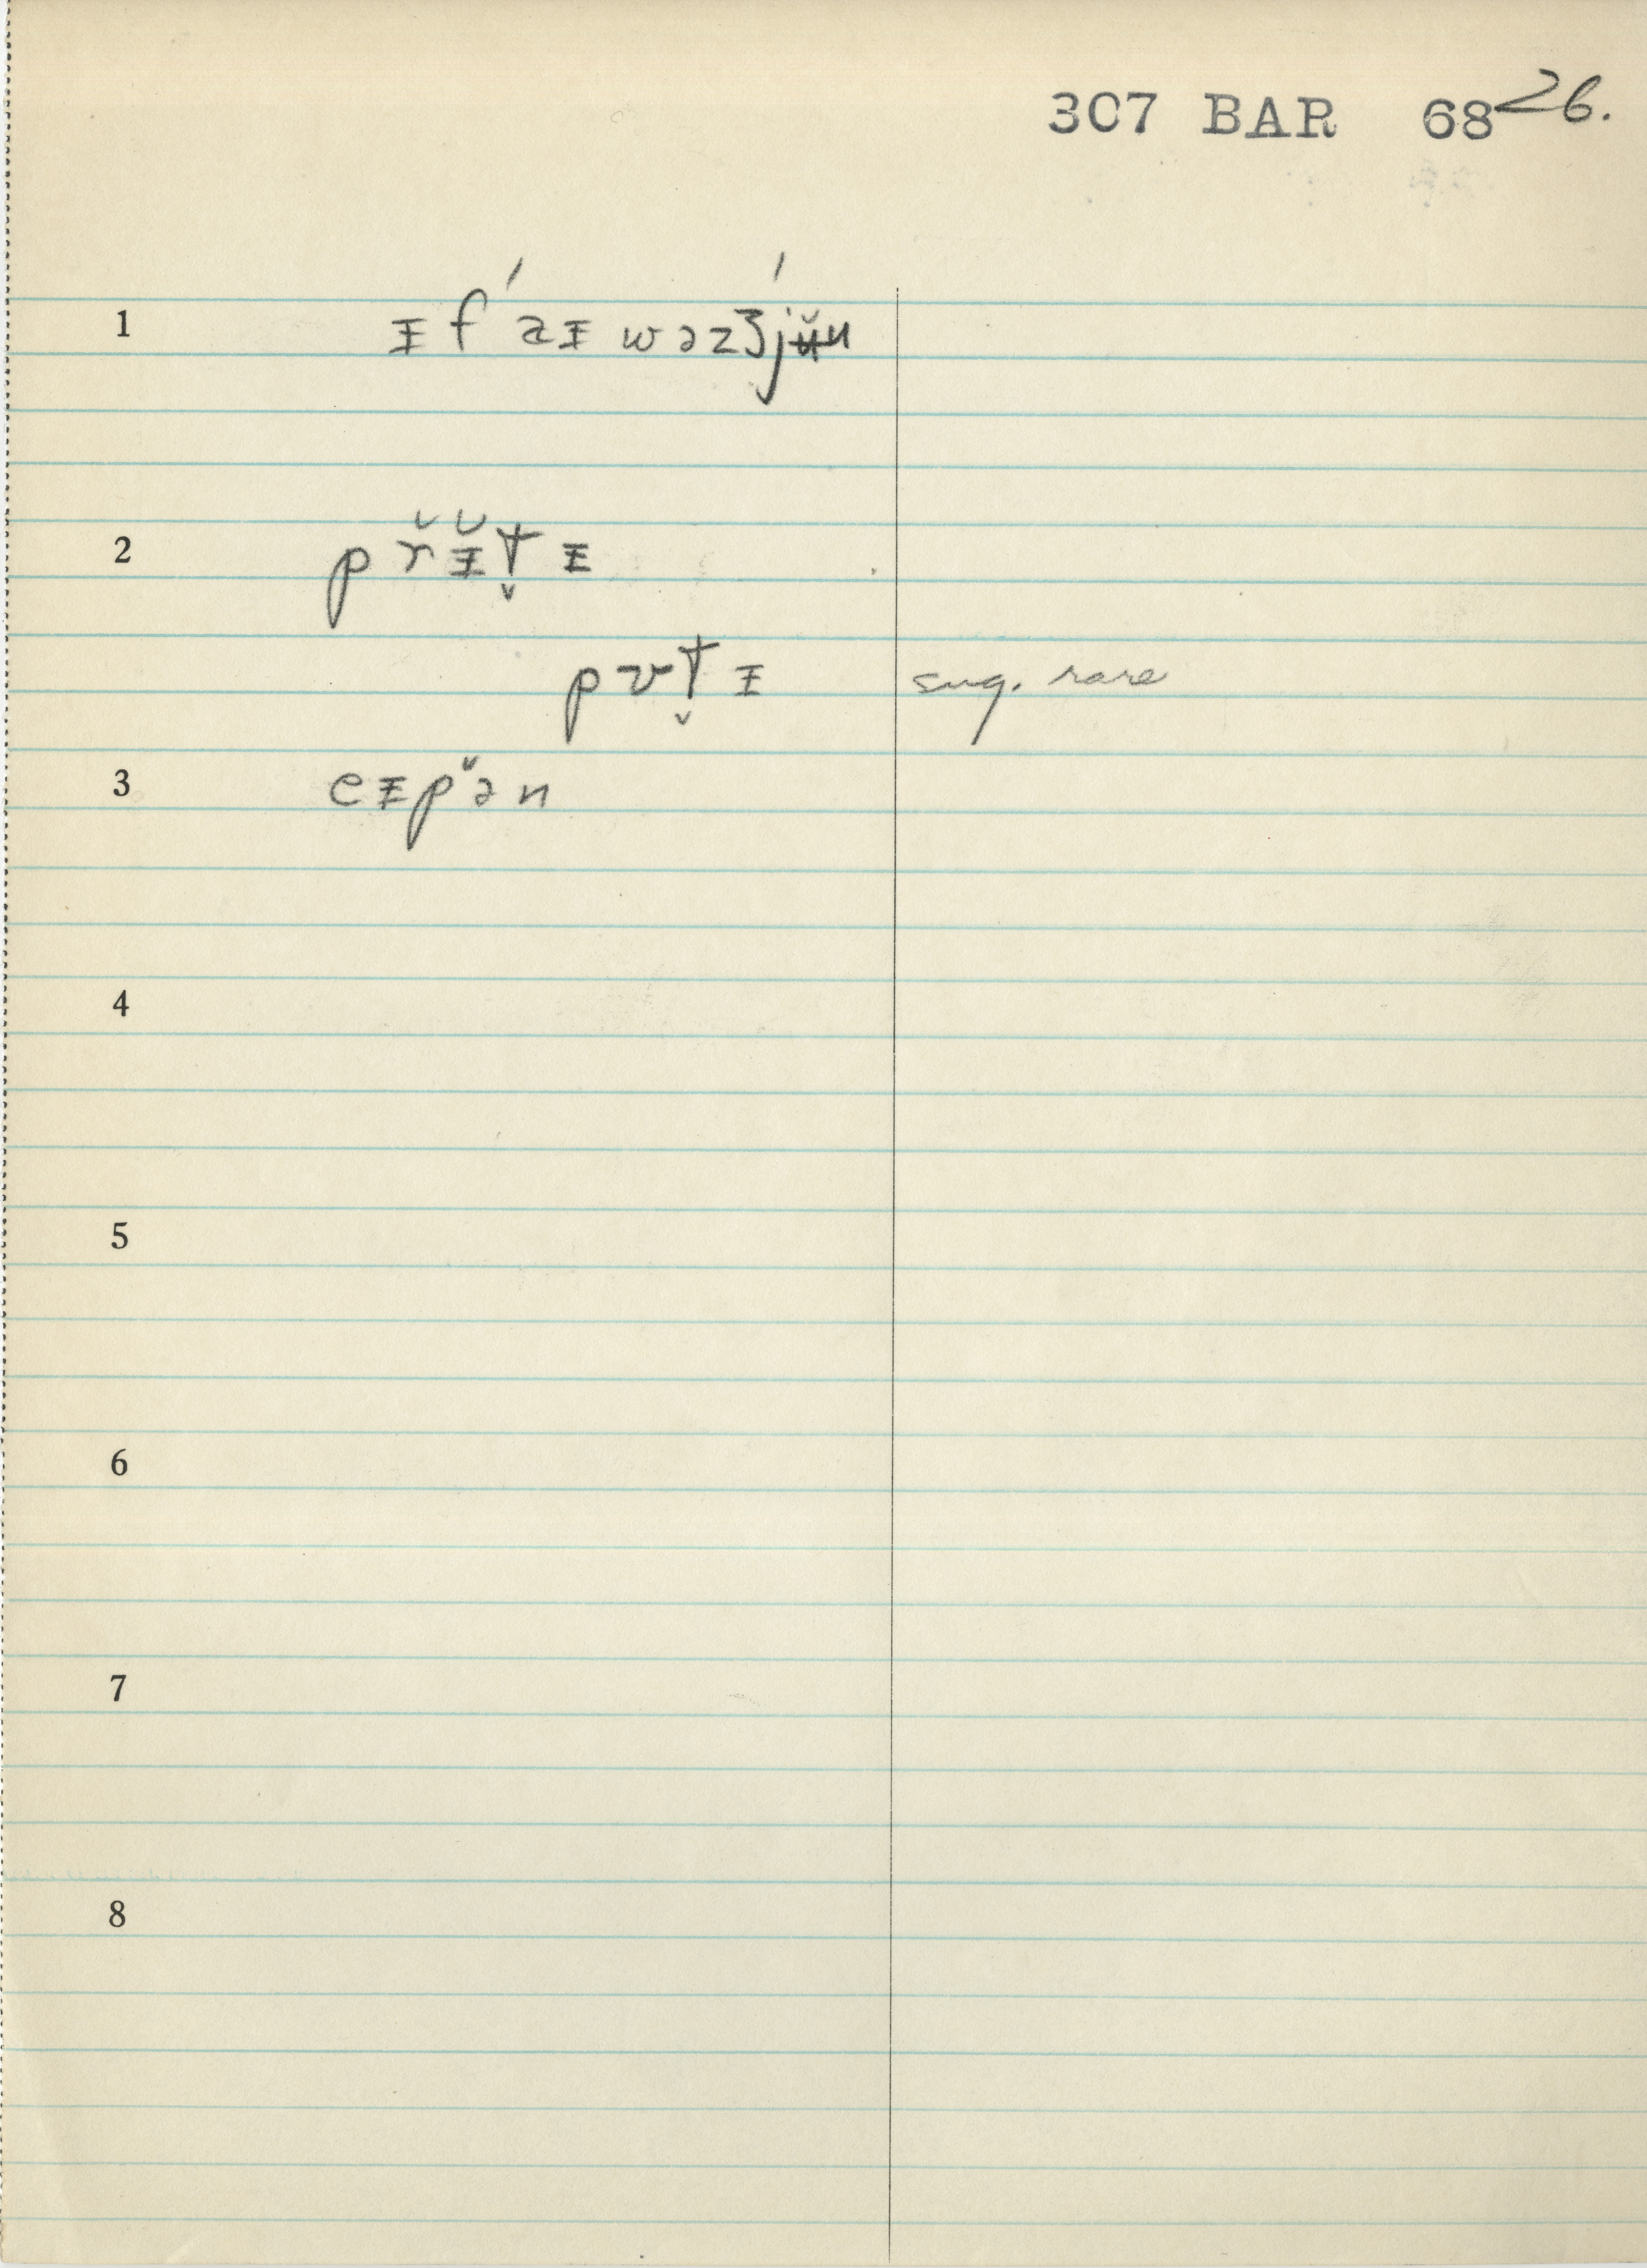 307 BAR 68 26.
1 ɪ̵ f ´ a ɪ̵ w ə z ʒ ´ j ʉ̆ n
2 p r̆ ɪ̵̆ t̬ ɪ̵
p v t̬ ɪ̵ sug. rare
3 e ɪ̵ p ə̆ n
4
5
6
7
8